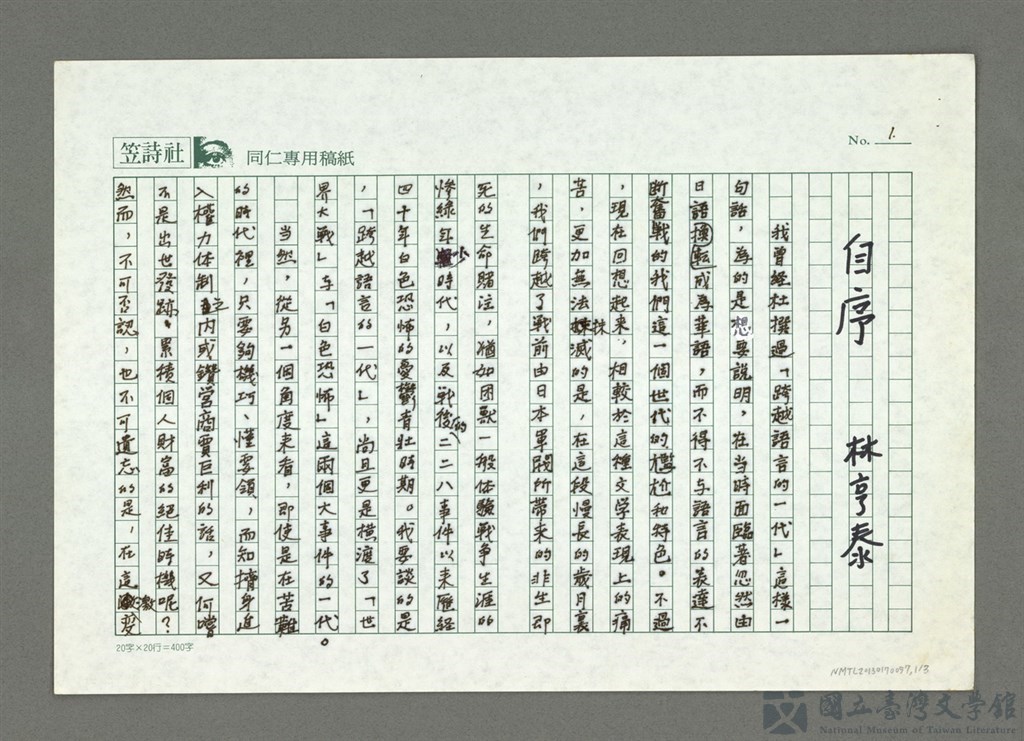 笠詩社 同仁專用稿紙
No. 1.
自序 林亨泰
我曾經杜撰過「跨越語言的一代」這樣一
句話，為的是想要說明，在当時面臨著忽然由
日語換転成為華語，而不得不与語言的表達不
断奮戰的我們這一個世代的尷尬和特色。不過
，現在回想起来，相較於這種文学表現上的痛
苦，更加無法抹滅的是，在這段慢長的歲月裏
，我們跨越了戰前由日本軍閥所带来的非生即
死的生命賭注，猶如困獸一般体驗戰争生涯的
慘綠年少時代，以及戰後的二二八事件以来歷経
四十年白色恐怖的憂鬱青壮時期。我要談的是
，「跨越語言的一代」，尚且更是橫渡了「世
界大戰」与「白色恐怖」這兩個大事件的一代。
当然，從另一個角度来看，即使是在苦難
的時代裡，只要夠機巧、懂要領，而知擠身進
入權力体制內或鑽営商賈巨利的話，又何嘗
不是出世發跡、累積個人財富的絕佳時機呢？
然而，不可否認，也不可遺忘的是，在這激変
20字×20行＝400字
NMTL20130170097,1/3
國立臺灣文學館
National Museum of Taiwan Literature